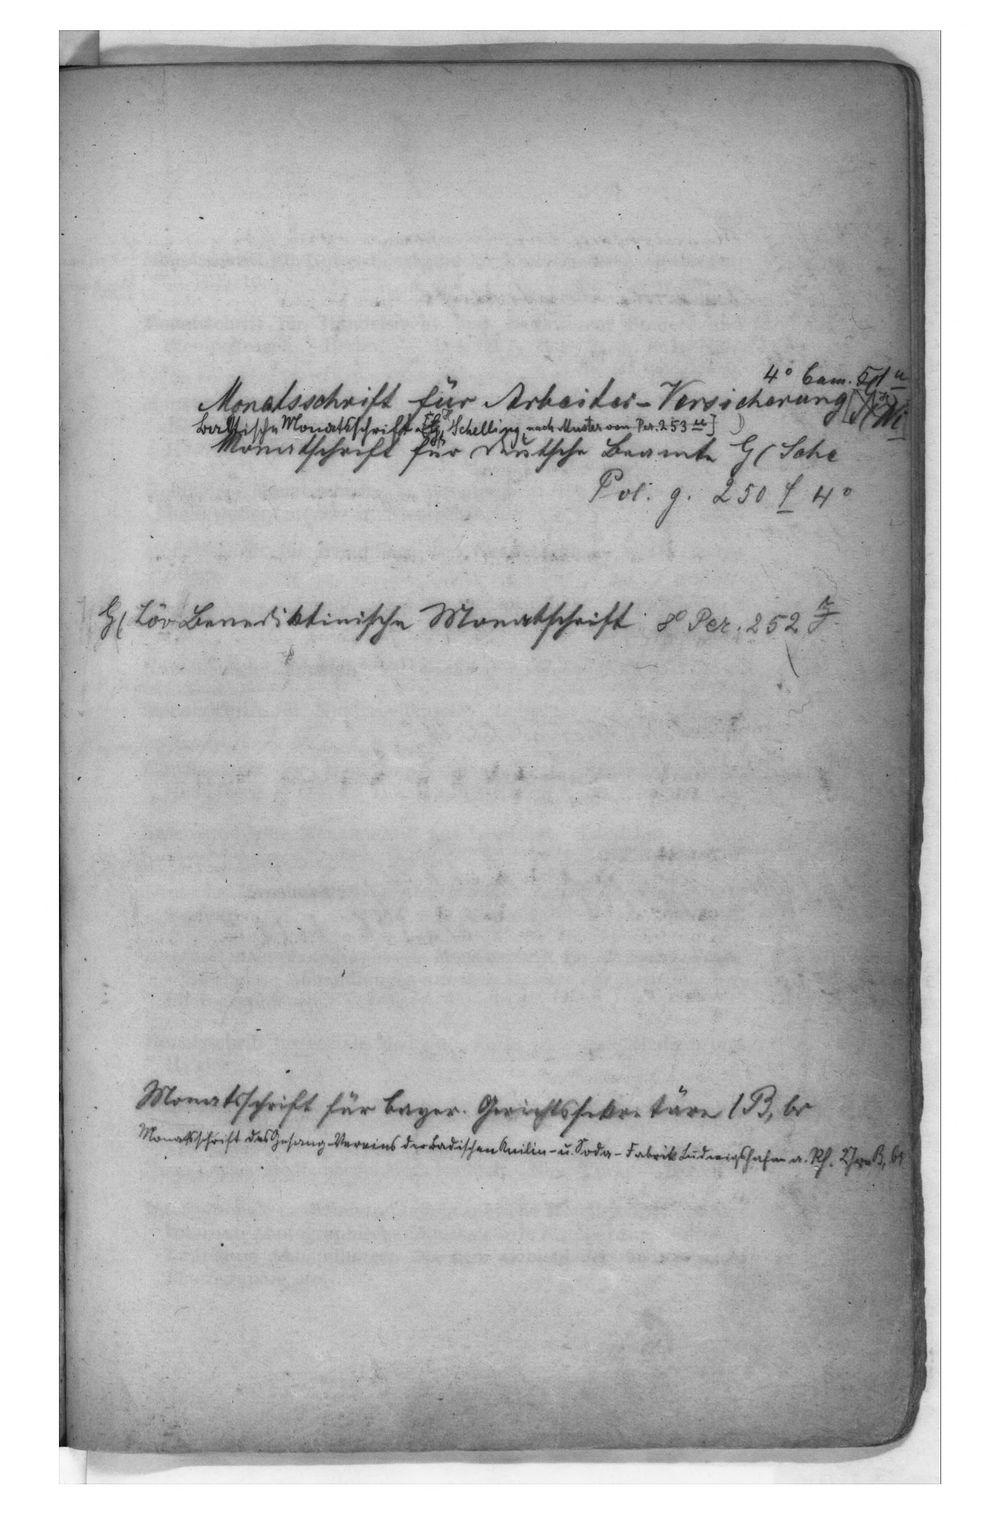 4° Cam.
Monatsschrift für Arbeiter-Versicherung
Baltische Monatsschrift Schelling nach Muster von Per. 253
Monatschrift für deutsche Beamte G( Sche
Pol. g. 250 f 4°
G( Löv Benediktinische Monatschrift 8° Per. 252
Monatsschrift für bayer. Gerichtssekretäre (B, br
Monatsschrift des Gesang-Vereins der Badischen Anilin- u. Soda-Fabrik Ludwigshafen a. Rh.